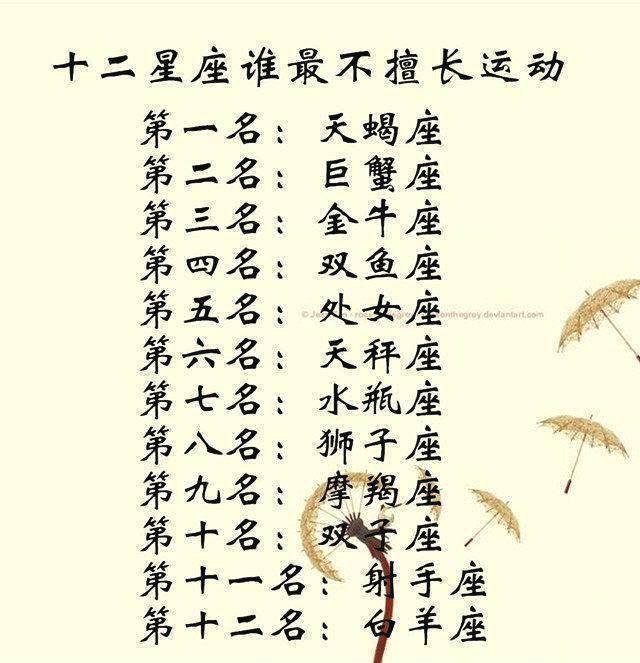 十二星座谁最不擅长运动
第一名：天蝎座
第二名：巨蟹座
第三名：金牛座
第四名：双鱼座
第五名：处女座
第六名：天秤座
第七名：水瓶座
第八名：狮子座
第九名：摩羯座
第十名：双子座
第十一名：射手座
第十二名：白羊座